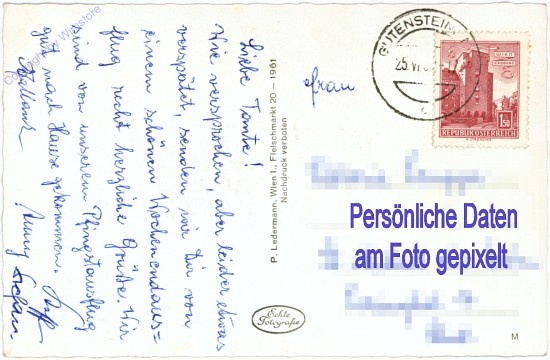 Liebe Tante!
Wie versprochen, aber leider etwas
verspätet, senden wir Dir von
einem schönen Wochenendaus-
flug recht herzliche Grüße. Wir
sind von unserem Pfingstausflug
gut nach Hause gekommen.
P. Ledermann, Wien I., Fleischmarkt 20 – 1961
Nachdruck verboten
Echte
Fotografie
Frau
GUTENSTEIN
25.VI.
1.50
REPUBLIK ÖSTERREICH
Persönliche Daten
am Foto gepixelt
M